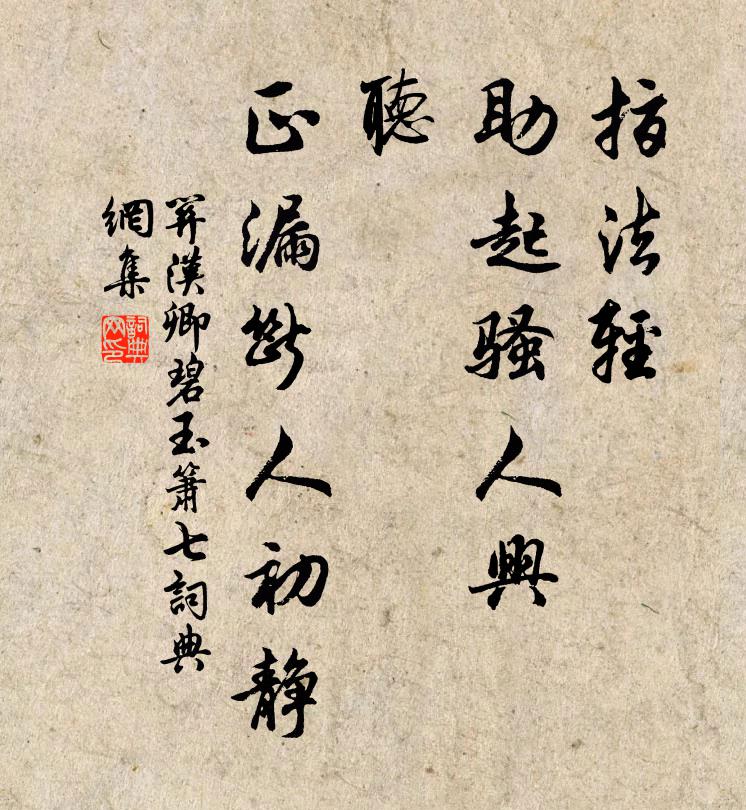 指法輕
助起騷人興
聽
正漏斷人初靜
關漢卿碧玉簫七詞典
網集
詞典
网印